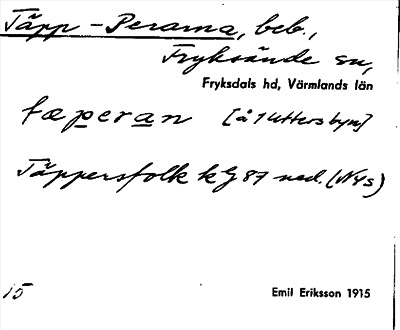 Täpp-Perarna, beb.,
Fryksände sn,
Fryksdals hd, Värmlands län
tæperan [å Uttersbyn]
Täppersfolk k G 87 ned. (Nys)
15 Emil Eriksson 1915